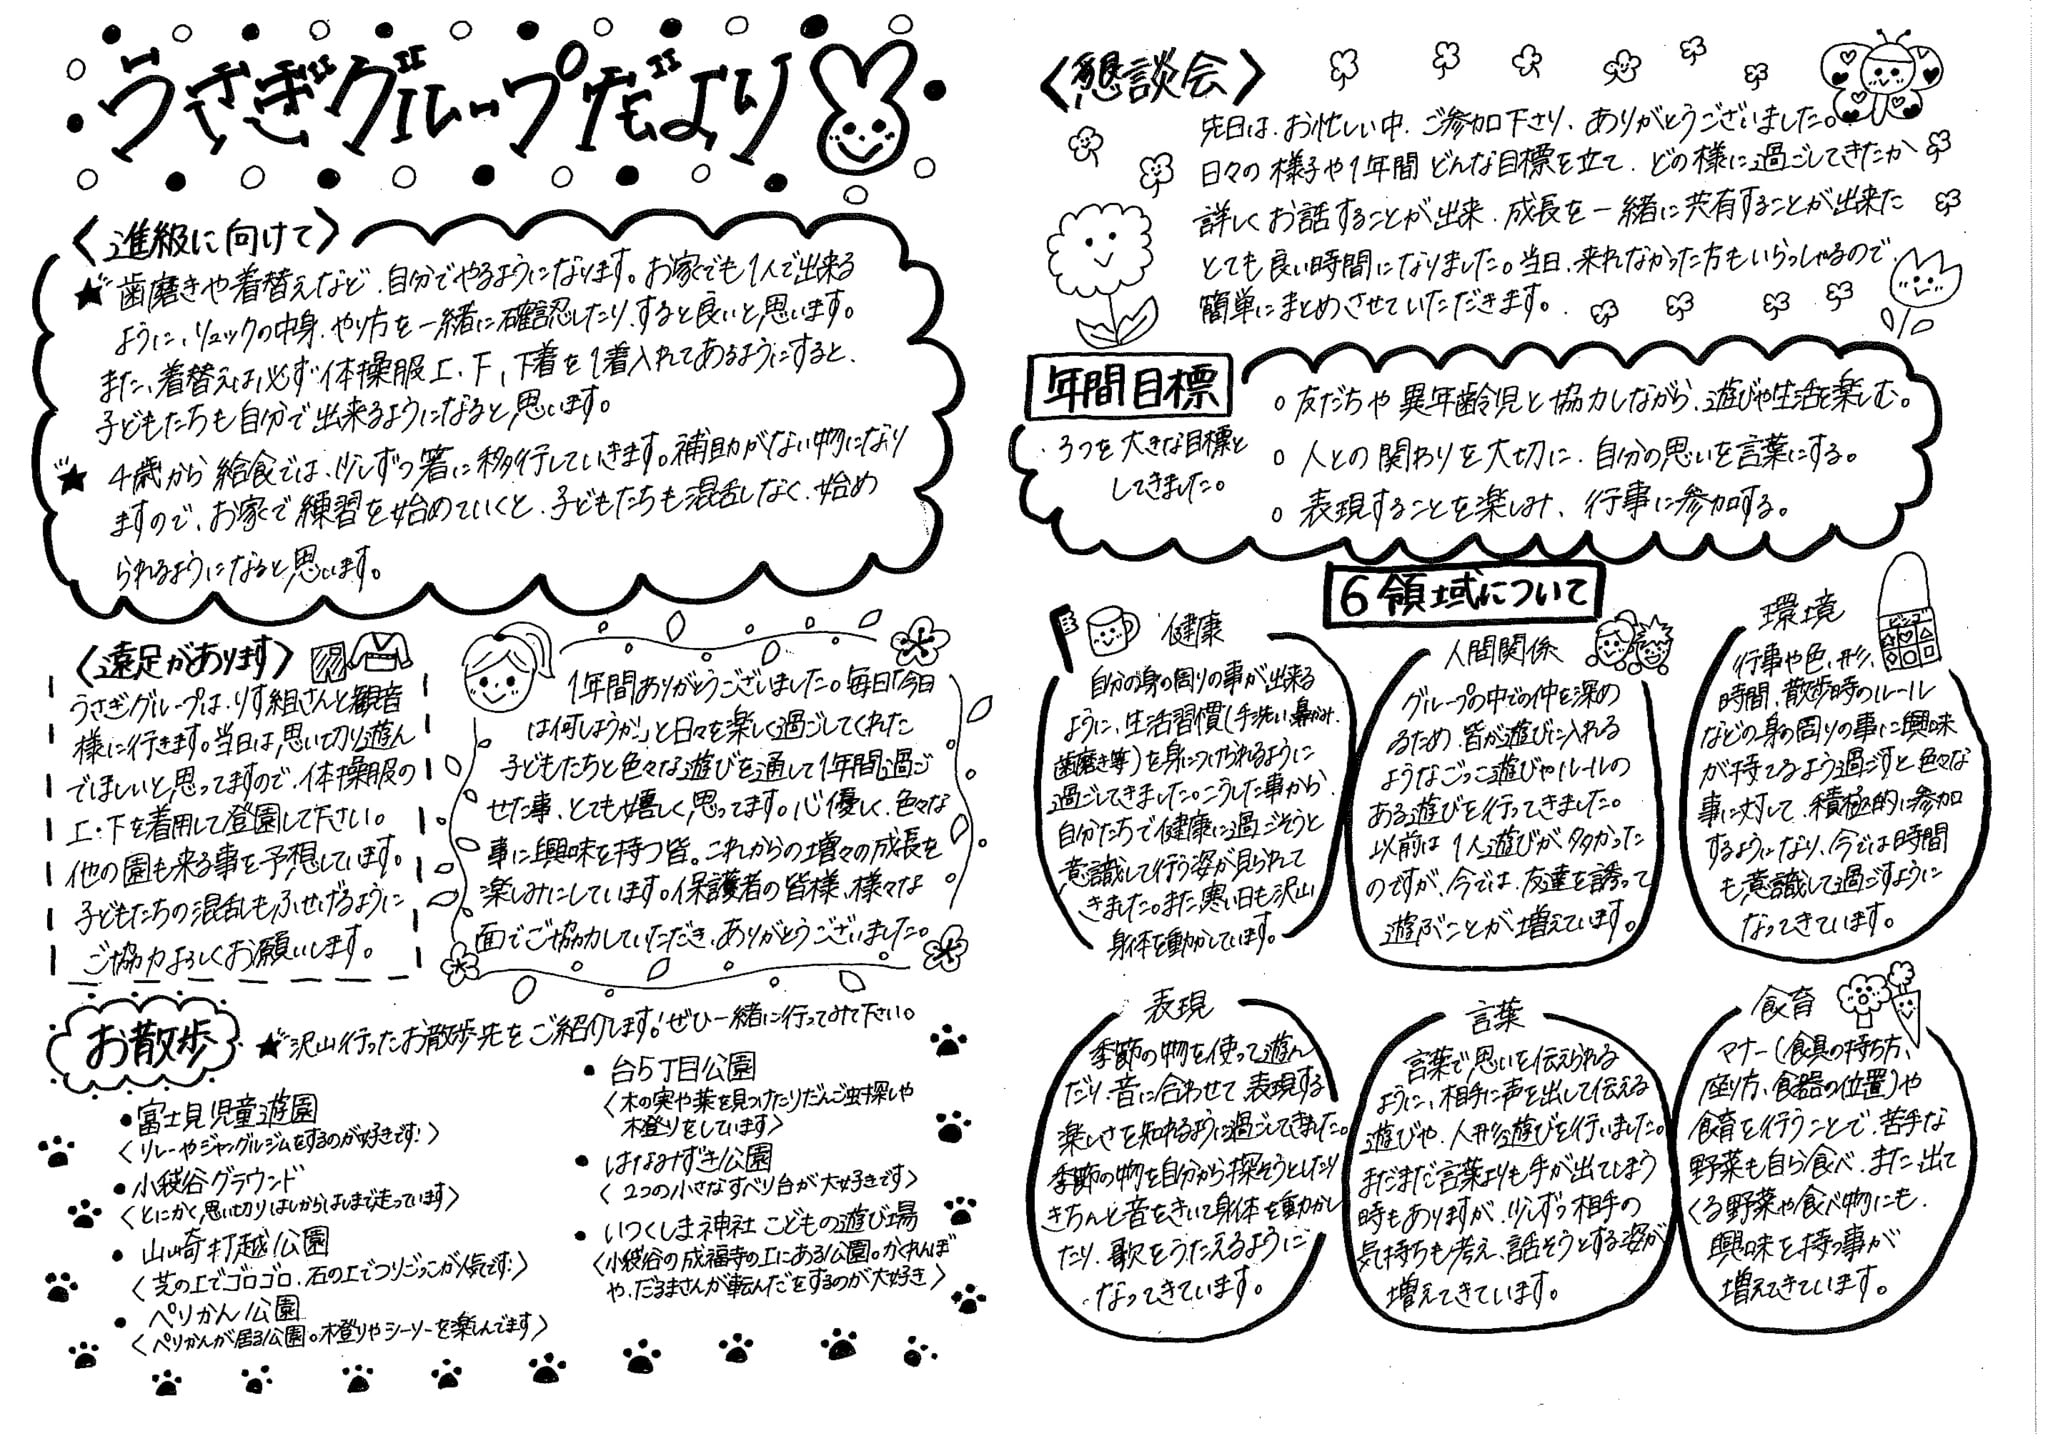 うさぎグループだより
〈進級に向けて〉
★歯磨きや着替えなど、自分でやるようになります。お家でも1人で出来る
ように、リュックの中身、やり方を一緒に確認したり、すると良いと思います。
また、着替えは、必ず体操服上、下、下着を1着入れてあるようにすると、
子どもたちも自分で出来るようになると思います。
★4歳から給食では、少しずつ箸に移行していきます。補助がない物になり
ますので、お家で練習を始めていくと、子どもたちも混乱しなく、始め
られるようになると思います。
〈遠足があります〉
うさぎグループは、りす組さんと観音
様に行きます。当日は、思い切り遊ん
でほしいと思ってますので、体操服の
上・下を着用して登園して下さい。
他の園も来る事を予想しています。
子どもたちの混乱もふせげるように
ご協力よろしくお願いします。
1年間ありがとうございました。毎日「今日
は何しようか」と日々を楽しく過ごしてくれた
子どもたちと色々な遊びを通して1年間過ご
せた事、とても嬉しく思ってます。心優しく、色々な
事に興味を持つ皆。これからの増々の成長を
楽しみにしています。保護者の皆様、様々な
面でご協力していただき、ありがとうございました。
お散歩
★沢山行ったお散歩先をご紹介します!ぜひ一緒に行ってみて下さい。
●富士見児童遊園
〈リレーやジャングルジムをするのが好きです!〉
●小袋谷グラウンド
〈とにかく、思い切りはしからはしまで走っています〉
●山崎打越公園
〈芝の上でゴロゴロ、石の上でつりごっこが人気です!〉
●ぺりかん公園
〈ペリかんが居る公園。木登りやシーソーを楽しんでます〉
●台5丁目公園
〈木の実や葉を見つけたりだんご虫探しや
木登りをしています〉
●はなみずき公園
〈2つの小さなすべり台が大好きです〉
●いつくしま神社 こどもの遊び場
〈小袋谷の成福寺の上にある公園。かくれんぼ
や、だるまさんが転んだをするのが大好き〉
〈懇談会〉
先日は、お忙しい中、ご参加下さり、ありがとうございました。
日々の様子や1年間どんな目標を立て、どの様に過ごしてきたか
詳しくお話することが出来、成長を一緒に共有することが出来た
とても良い時間になりました。当日、来れなかった方もいらっしゃるので、
簡単にまとめさせていただきます。
年間目標
3つを大きな目標と
してきました。
○友だちや異年齢児と協力しながら、遊びや生活を楽しむ。
○人との関わりを大切に、自分の思いを言葉にする。
○表現することを楽しみ、行事に参加する。
6領域について
健康
自分の身の周りの事が出来る
ように、生活習慣(手洗い、鼻かみ、
歯磨き等)を身につけられるように
過ごしてきました。こうした事から、
自分たちで健康に過ごそうと
意識して行う姿が見られて
きました。また、寒い日も沢山
身体を動かしています。
人間関係
グループの中での仲を深め
るため、皆が遊びに入れる
ようなごっこ遊びやルールの
ある遊びを行ってきました。
以前は1人遊びが多かった
のですが、今では、友達を誘って
遊ぶことが増えています。
環境
行事や色、形、
時間、散歩時のルール
などの身の周りの事に興味
が持てるよう過ごすと色々な
事に対して、積極的に参加
するようになり、今では時間
も意識して過ごすように
なってきています。
表現
季節の物を使って遊ん
だり、音に合わせて表現する
楽しさを知れるように過ごしてきました。
季節の物を自分から探そうとしたり
きちんと音をきいて身体を動かし
たり、歌をうたえるように
なってきています。
言葉
言葉で思いを伝えられる
ように、相手に声を出して伝える
遊びや、人形遊びを行いました。
まだまだ言葉よりも手が出てしまう
時もありますが、少しずつ相手の
気持ちも考え、話そうとする姿が
増えてきています。
食育
マナー(食具の持ち方、
座り方、食器の位置)や
食育を行うことで、苦手な
野菜も自ら食べ、また、出て
くる野菜や食べ物にも、
興味を持つ事が
増えてきています。